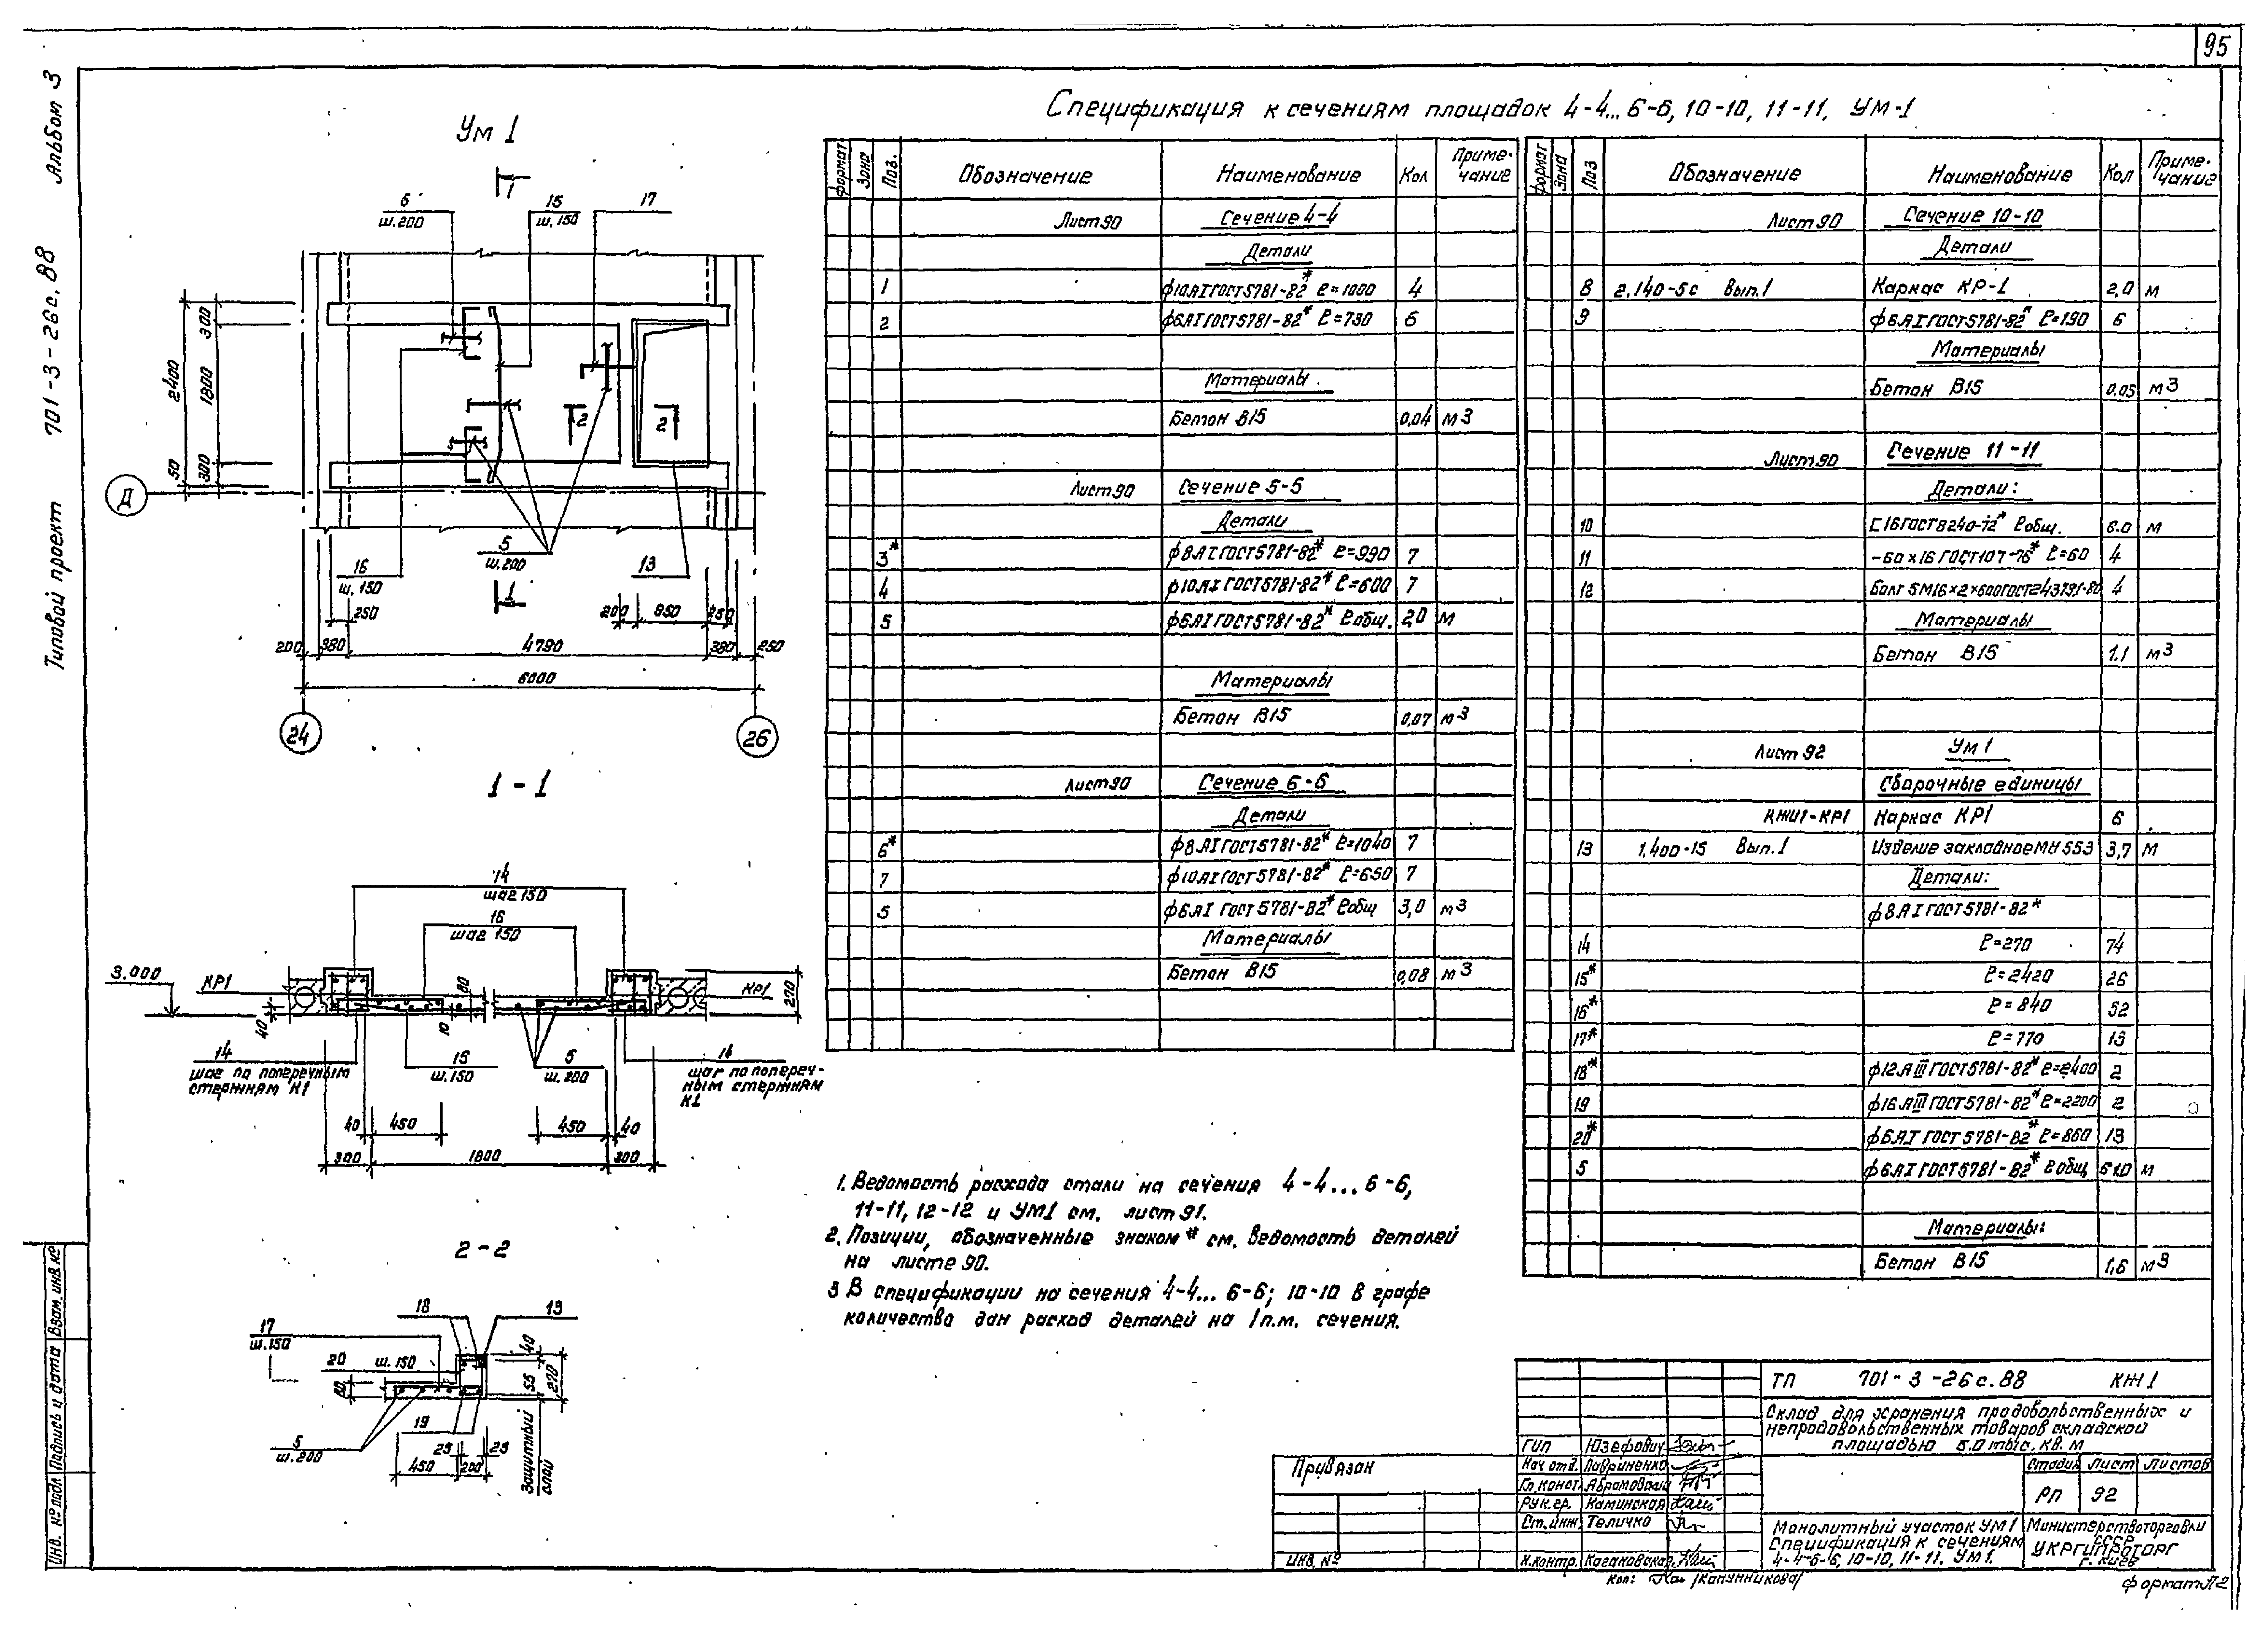 95
Типовой проект 701-3-26с.88 Альбом 3
Ум 1
1
6
ш.200
15
ш.150
17
2400
50
300
1800
300
2
2
Д
16
ш.150
5
ш.200
13
1
250
200
950
250
200
380
4790
380
250
6000
24
26
1-1
14
шаг 150
16
шаг 150
3.000
КР1
КР1
80
270
40
10
14
шаг по поперечным
стержням К1
15
ш.150
5
ш.200
14
шаг по попереч-
ным стержням
К1
40
450
450
40
300
1800
300
2-2
18
13
17
ш.150
20
ш.150
40
80
55
270
19
5
ш.200
25
25
450
200
защитный
слой
Спецификация к сечениям площадок 4-4... 6-6, 10-10, 11-11, УМ-1
формат Зона Поз. Обозначение Наименование Кол Приме-чание
Лист 90 Сечение 4-4
Детали
1 ф10АI ГОСТ5781-82* ℓ=1000 4
2 ф6АI ГОСТ5781-82* ℓ=730 6
Материалы
Бетон В15 0,04 м3
Лист 90 Сечение 5-5
Детали
3* ф8АI ГОСТ5781-82* ℓ=990 7
4 ф10АI ГОСТ5781-82* ℓ=600 7
5 ф6АI ГОСТ5781-82* ℓобщ. 2,0 м
Материалы
Бетон В15 0,07 м3
Лист 90 Сечение 6-6
Детали
6* ф8АI ГОСТ5781-82* ℓ=1040 7
7 ф10АI ГОСТ5781-82* ℓ=650 7
5 ф6АI ГОСТ5781-82* ℓобщ 3,0 м3
Материалы
Бетон В15 0,08 м3
формат Зона Поз Обозначение Наименование Кол Приме-чание
Лист 90 Сечение 10-10
Детали
8 2.140-5с Вып.1 Каркас КР-1 2,0 м
9 ф6АI ГОСТ5781-82* ℓ=190 6
Материалы
Бетон В15 0,05 м3
Лист 90 Сечение 11-11
Детали:
10 С16 ГОСТ8240-72* ℓобщ. 6.0 м
11 -60×16 ГОСТ107-76* ℓ=60 4
12 Болт 5М16×2×600 ГОСТ24379.1-80 4
Материалы
Бетон В15 1.1 м3
Лист 92 Ум 1
Сборочные единицы
КЖИ1-КР1 Каркас КР1 6
13 1.400-15 Вып.1 Изделие закладное МН 553 3,7 м
Детали:
ф8АI ГОСТ5781-82*
14 ℓ=270 74
15* ℓ=2420 26
16* ℓ=840 52
17* ℓ=770 13
18* ф12АIII ГОСТ5781-82* ℓ=2400 2
19 ф16АIII ГОСТ5781-82* ℓ=2200 2
20* ф6АI ГОСТ5781-82* ℓ=860 13
5 ф6АI ГОСТ5781-82* ℓобщ 61.0 м
Материалы:
Бетон В15 1,6 м3
1. Ведомость расхода стали на сечения 4-4... 6-6,
11-11, 12-12 и УМ1 см. лист 91.
2. Позиции, обозначенные знаком * см. ведомость деталей
на листе 90.
3 В спецификации на сечения 4-4... 6-6; 10-10 в графе
количество дан расход деталей на 1п.м. сечения.
ТП 701-3-26с.88 КЖ1
Склад для хранения продовольственных и
непродовольственных товаров складской
площадью 5.0 тыс. кв. м
ГИП Юзефович
Нач отд. Лавриненко
Гл.конст. Абрамовский
Рук.гр. Каминская
Ст.инж. Теличко
Н.контр. Кагановская
Стадия Лист Листов
РП 92
Монолитный участок УМ1
Спецификация к сечениям
4-4-6-6, 10-10, 11-11. УМ1.
Министерство торговли
СССР
УКРГИПРОТОРГ
г. Киев
Привязан
Инв. №
Коп: /Канунникова/
формат А2
Инв. № подл Подпись и дата Взам.инв.№